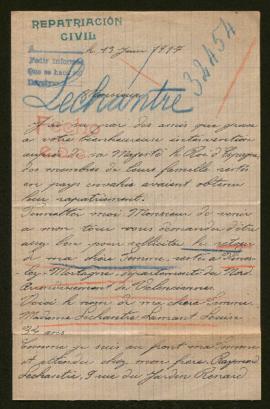 REPATRIACIÓN
CIVIL
le 13 Juin 1917
32454
Pedir informe
Que se haga
Monsieur
Lechantre
J'ai su par des amis que grace
à votre bienheureuse intervention
auprès de sa Majesté le Roi d'Espagne
des membres de leurs famille restés
en pays envahis avaient obtenu
leur rapatriement.
Permettez moi Monsieur de venir
à mon tour vous demander d'être
assez bon pour solliciter le retour
de ma chère femme restée à
Mortagne, département du Nord
arrondissement de Valenciennes.
Voici le nom de ma chère femme
Madame Lechantre Louise
34 ans
Comme je suis au front ma femme
est attendue chez mon frère Raymond
Lechantre, 9 rue du Jardin Renard